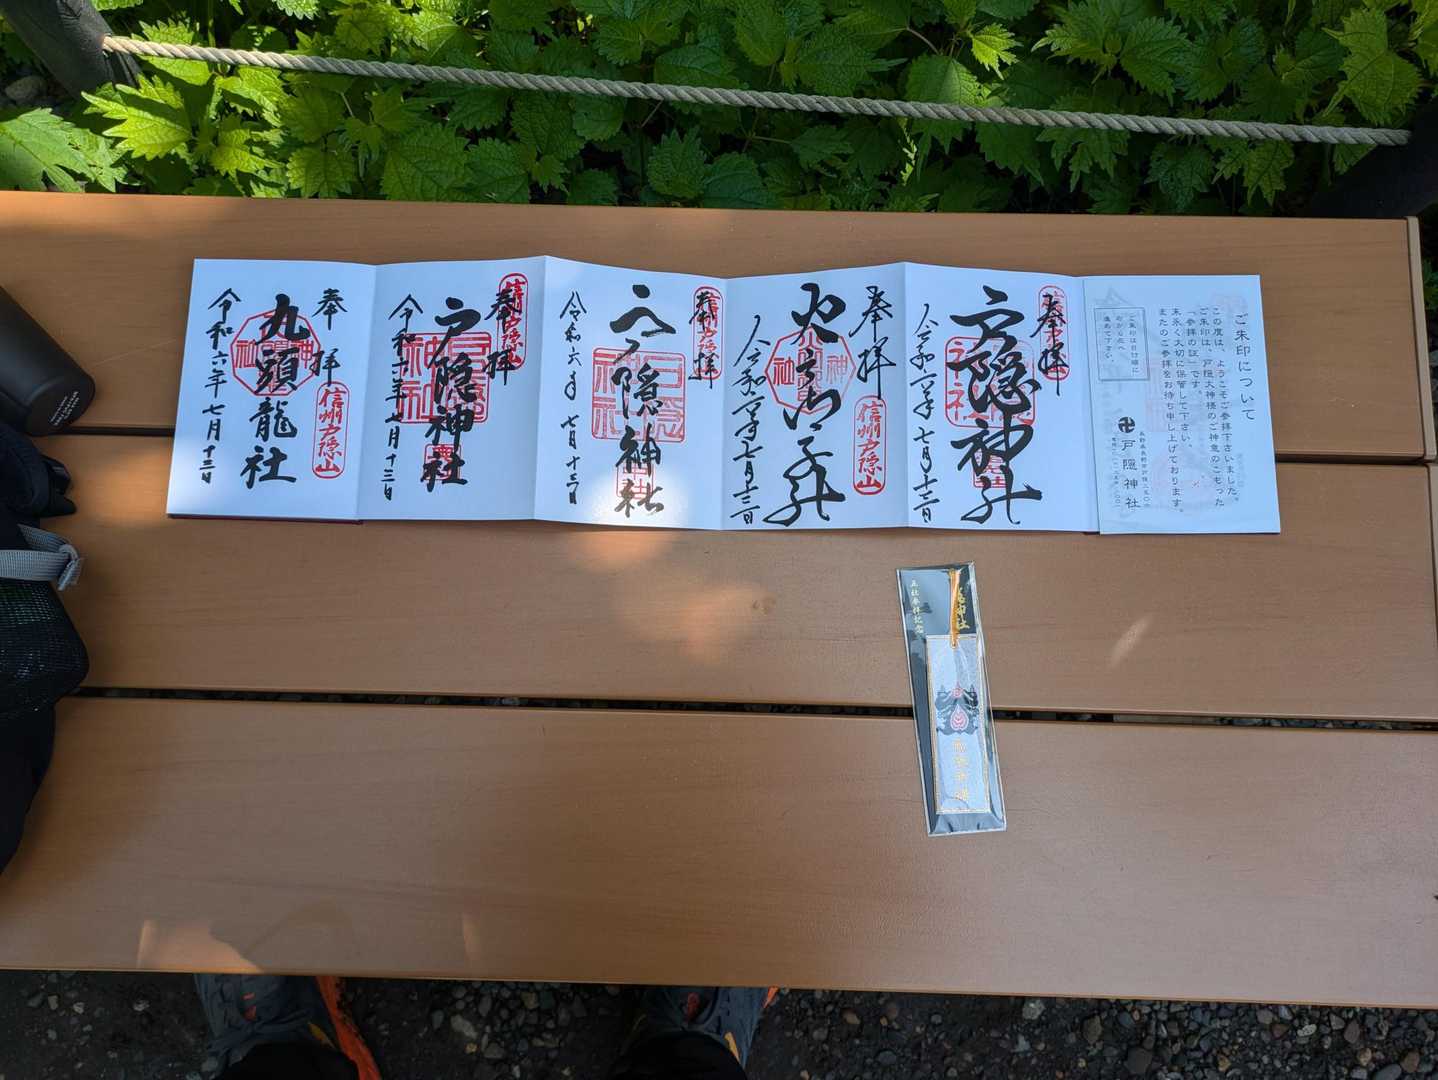 奉拝
九頭龍社
令和六年七月十三日
信州戸隠山
奉拝
戸隠神社
令和六年七月十三日
信州戸隠山
奉拝
戸隠神社
令和六年
七月十三日
信州戸隠山
奉拝
火之御子社
令和六年七月十三日
信州戸隠山
奉拝
戸隠神社
令和六年
七月十三日
ご朱印について
この度は、ようこそご参拝下さいました。
ご朱印は、戸隠大神様のご神意のこもった
「参拝の証」です。
末永く大切に保管して下さい。
またのご参拝をお待ち申し上げております。
戸隠神社
五社参拝記念